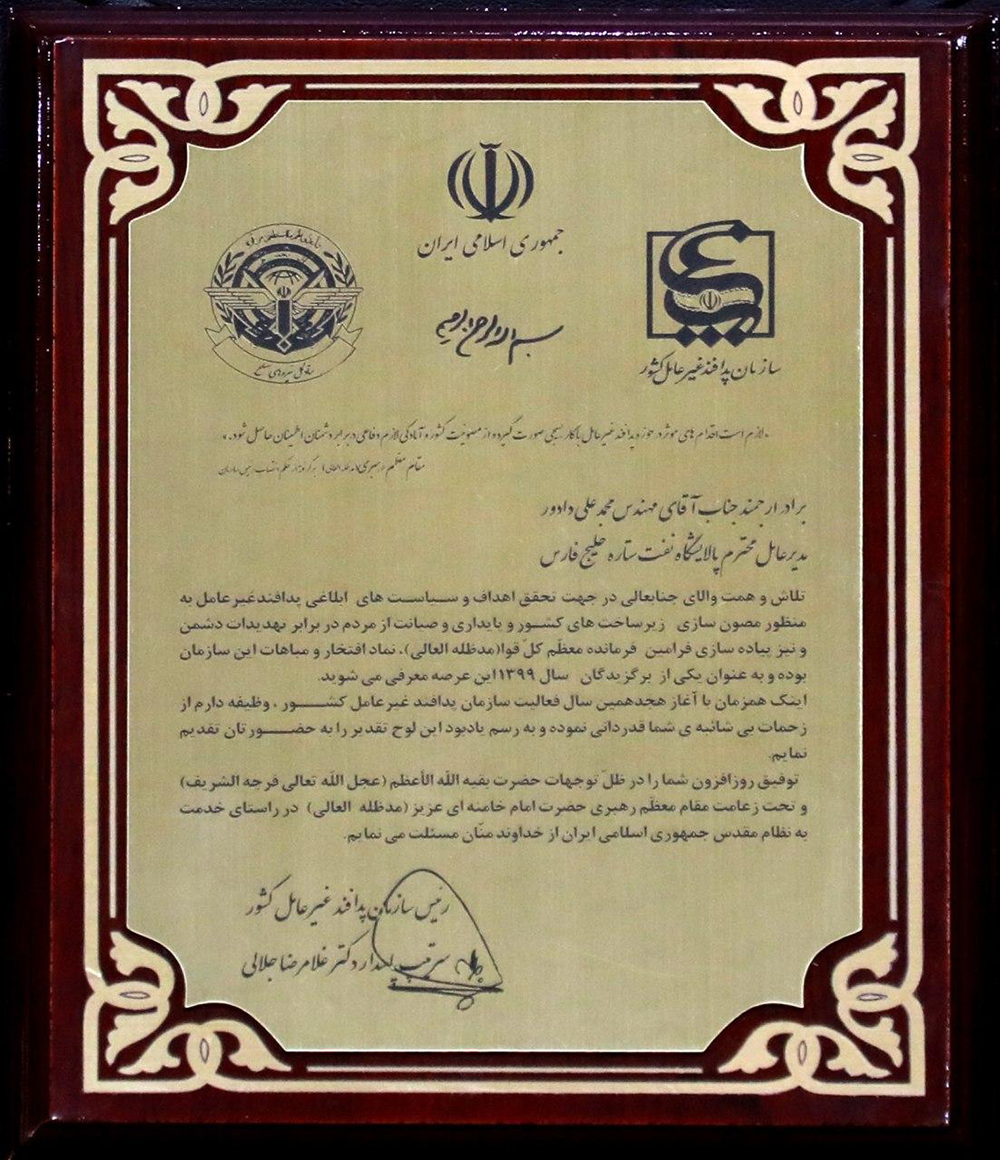 جمهوری اسلامی ایران
بسم الله الرحمن الرحیم
سازمان پدافند غیر عامل کشور
«لازم است اقدام های موثر در حوزه پدافند غیر عامل با کار بسیجی صورت گیرد و از مصونیت کشور و آمادگی لازم دفاعی در برابر دشمنان اطمینان حاصل شود.»
مقام معظم رهبری (مدظله العالی)
برادر ارجمند جناب آقای مهندس محمد علی دادور
مدیرعامل محترم پالایشگاه نفت ستاره خلیج فارس
تلاش و همت والای جنابعالی در جهت تحقق اهداف و سیاست های ابلاغی پدافندغیرعامل به
منظور مصون سازی زیرساخت های کشور و پایداری و صیانت از مردم در برابر تهدیدات دشمن
و نیز پیاده سازی فرامین فرمانده معظّم کلّ قوا(مدظله العالی)، نماد افتخار و مباهات این سازمان
بوده و به عنوان یکی از برگزیدگان سال ۱۳۹۹ این عرصه معرفی می شوید.
اینک همزمان با آغاز هجدهمین سال فعالیت سازمان پدافند غیرعامل کشـــور ، وظیفه دارم از
زحمات بی شائبه ی شما قدردانی نموده و به رسم یادبود این لوح تقدیر را به حضـــورتان تقدیم
نمایم.
توفیق روزافزون شما را در ظلّ توجهات حضرت بقیه الله الأعظم (عجل الله تعالی فرجه الشریف)
و تحت زعامت مقام معظّم رهبری حضرت امام خامنه ای عزیز (مدظله العالی) در راستای خدمت
به نظام مقدس جمهوری اسلامی ایران از خداوند منّان مسئلت می نمایم.
رئیس سازمان پدافند غیر عامل کشور
سرتیپ پاسدار دکتر غلامرضا جلالی